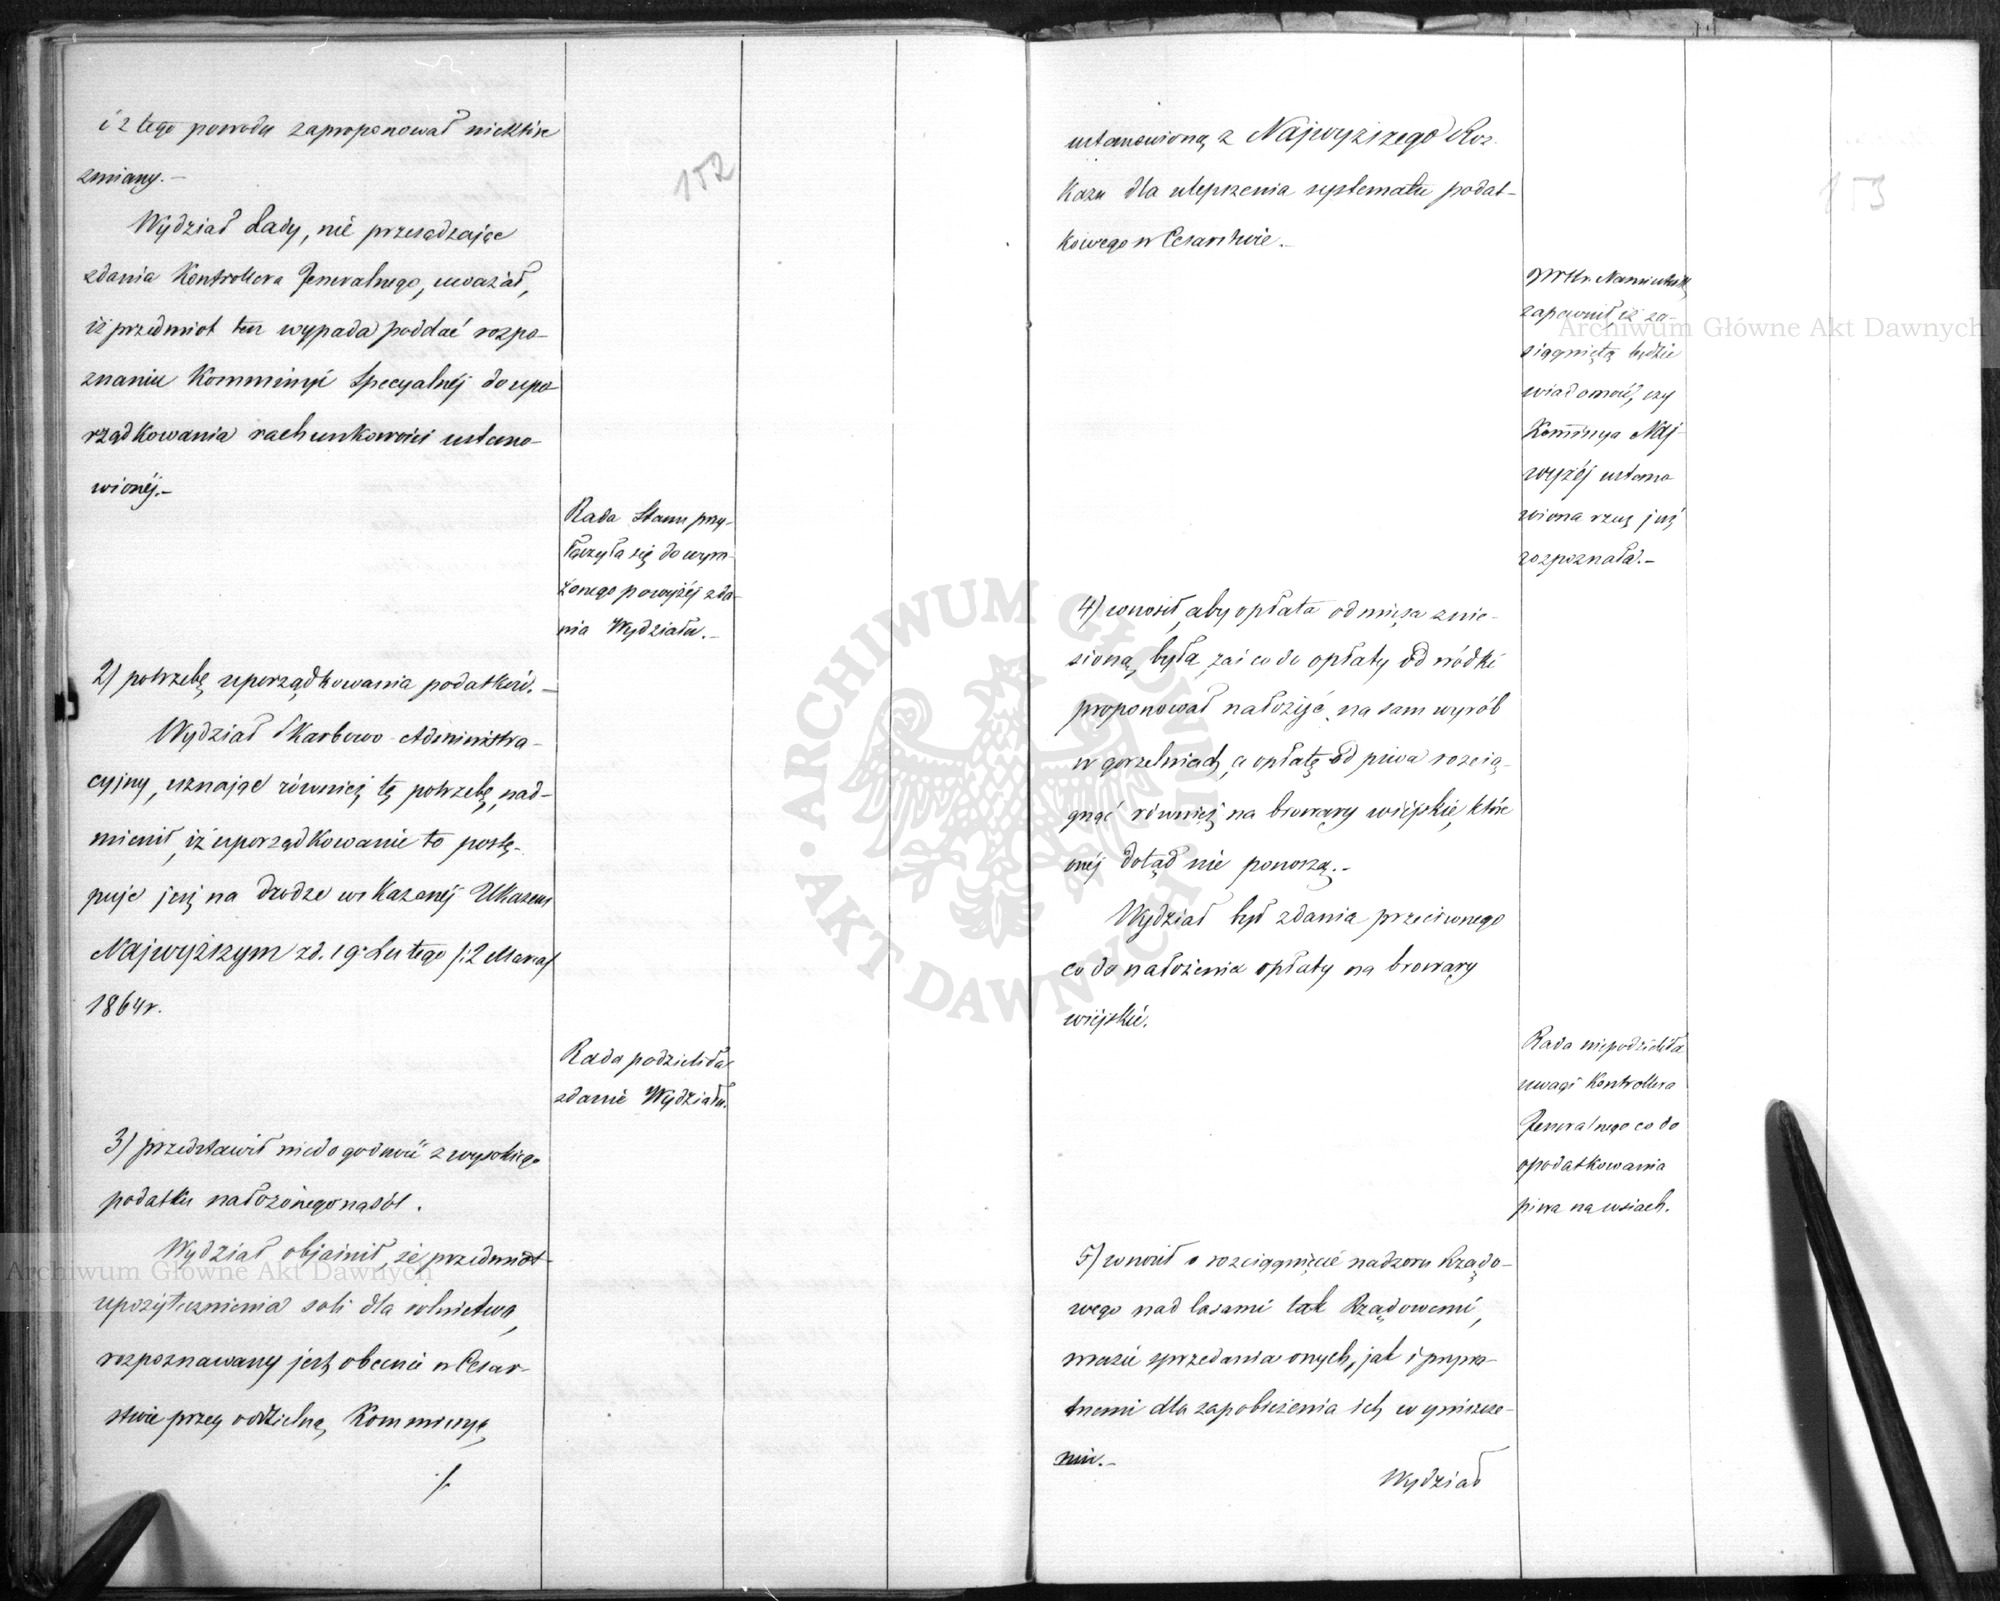 152
i z tego powodu zaproponował niektóre
zmiany.—
Wydział Rady, nie przesądzając
zdania Kontrollera Jeneralnego, uważał,
iż przedmiot ten wypada poddać rozpo-
znaniu Kommissyi Specyalnéj do upo-
rządkowania rachunkowości ustano-
wionéj.—
Rada Stanu przy-
łączyła się do wyra-
żonego powyżéj zda-
nia Wydziału.—
2) potrzebę uporządkowania podatków.—
Wydział Skarbowo-Administra-
cyjny, uznając również tę potrzebę, nad-
mienił, iż uporządkowanie to postę-
puje już na drodze wskazanéj Ukazem
Najwyższym z d. 19. Lutego /:2 Marca/
1864 r.
Rada podzieliła
zdanie Wydziału.
3) przedstawił niedogodność z wysokiego
podatku nałożonego na sól.
Wydział objaśnił, że przedmiot
upożytecznienia soli dla rolnictwa,
rozpoznawany jest obecnie w Cesar-
stwie przez oddzielną Kommissyę,
/.
153
ustanowioną z Najwyższego Roz-
kazu dla ulepszenia systematu podat-
kowego w Cesarstwie.—
zapewnił, iż za-
siągniętą będzie
wiadomość, czy
Kommissya Naj-
wyżéj ustano-
wiona rzecz już
rozpoznała.—
4) wnosił, aby opłata od mięsa znie-
sioną była, zaś co do opłaty od wódki
proponował nałożyć na sam wyrób
w gorzelniach, a opłatę od piwa rozcią-
gnąć również na browary wiejskie, które
onéj dotąd nie ponoszą.—
Wydział był zdania przeciwnego
co do nałożenia opłaty na browary
wiejskie.
Rada niepodzieliła
uwagi Kontrollera
Jeneralnego co do
opodatkowania
piwa na wsiach.
5) wnosił o rozciągnięcie nadzoru Rządo-
wego nad lasami tak Rządowemi,
w razie sprzedania onych, jak i prywa-
tnemi dla zapobieżenia ich wyniszcze-
niu.—
Wydział
Archiwum Główne Akt Dawnych
Archiwum Główne Akt Dawnych
ARCHIWUM GŁÓWNE AKT DAWNYCH